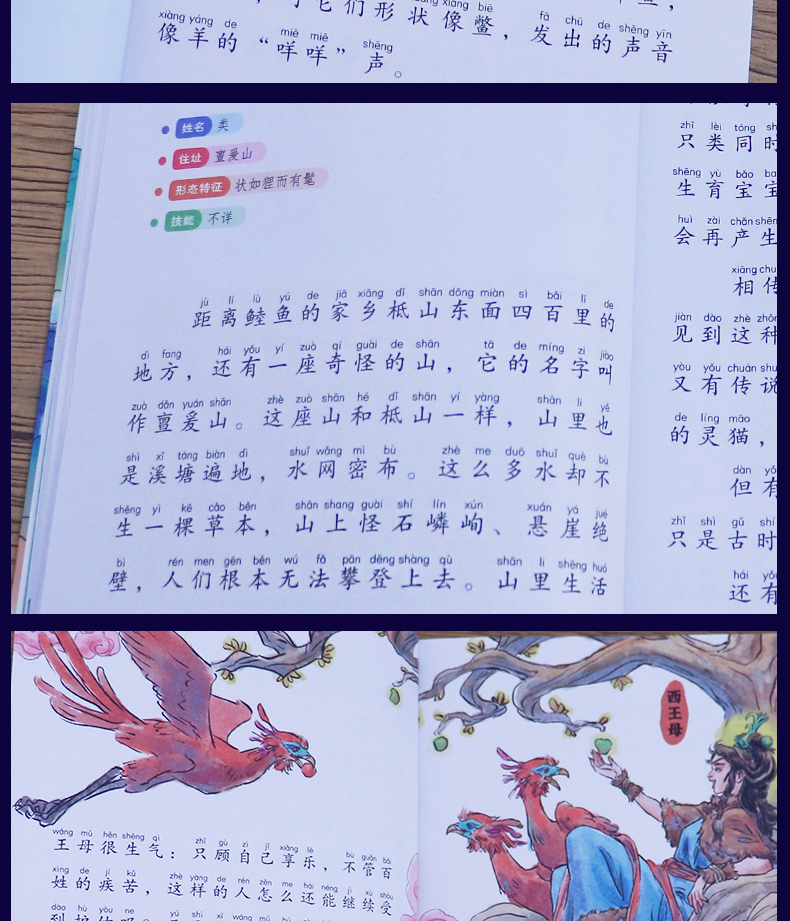 们形状像鳖，发出的声音
像羊的“咩咩”声。
姓名 类
住址 亶爰山
形态特征 状如狸而有髦
技能 不详
jù lí lù yú de jiā xiāng dǐ shān dōng miàn sì bǎi lǐ de
距离鯥鱼的家乡柢山东面四百里的
dì fang hái yǒu yí zuò qí guài de shān tā de míng zi jiào
地方，还有一座奇怪的山，它的名字叫
zuò dǎn yuán shān zhè zuò shān hé dǐ shān yí yàng shān li yě
作亶爰山。这座山和柢山一样，山里也
shì xī táng biàn dì shuǐ wǎng mì bù zhè me duō shuǐ què bù
是溪塘遍地，水网密布。这么多水却不
shēng yì kē cǎo běn shān shang guài shí lín xún xuán yá jué
生一棵草本，山上怪石嶙峋、悬崖绝
bì rén men gēn běn wú fǎ pān dēng shàng qù shān li shēng huó
壁，人们根本无法攀登上去。山里生活
zhǐ lèi tóng
只类同时
shēng yù bǎo
生育宝宝
huì zài chǎn shēng
会再产生
xiāng
相传
jiàn dào zhè zhǒng
见到这种
yòu yǒu chuán shuō
又有传说
de líng māo
的灵猫，
dàn
但有
zhǐ shì gǔ shí
只是古时
hái yǒu
还有
西王母
wáng mǔ hěn shēng qì zhǐ gù zì jǐ xiǎng lè bù guǎn bǎi
王母很生气：只顾自己享乐，不管百
xìng de jí kǔ zhè yàng de rén zěn me hái néng jì xù shòu
姓的疾苦，这样的人怎么还能继续受